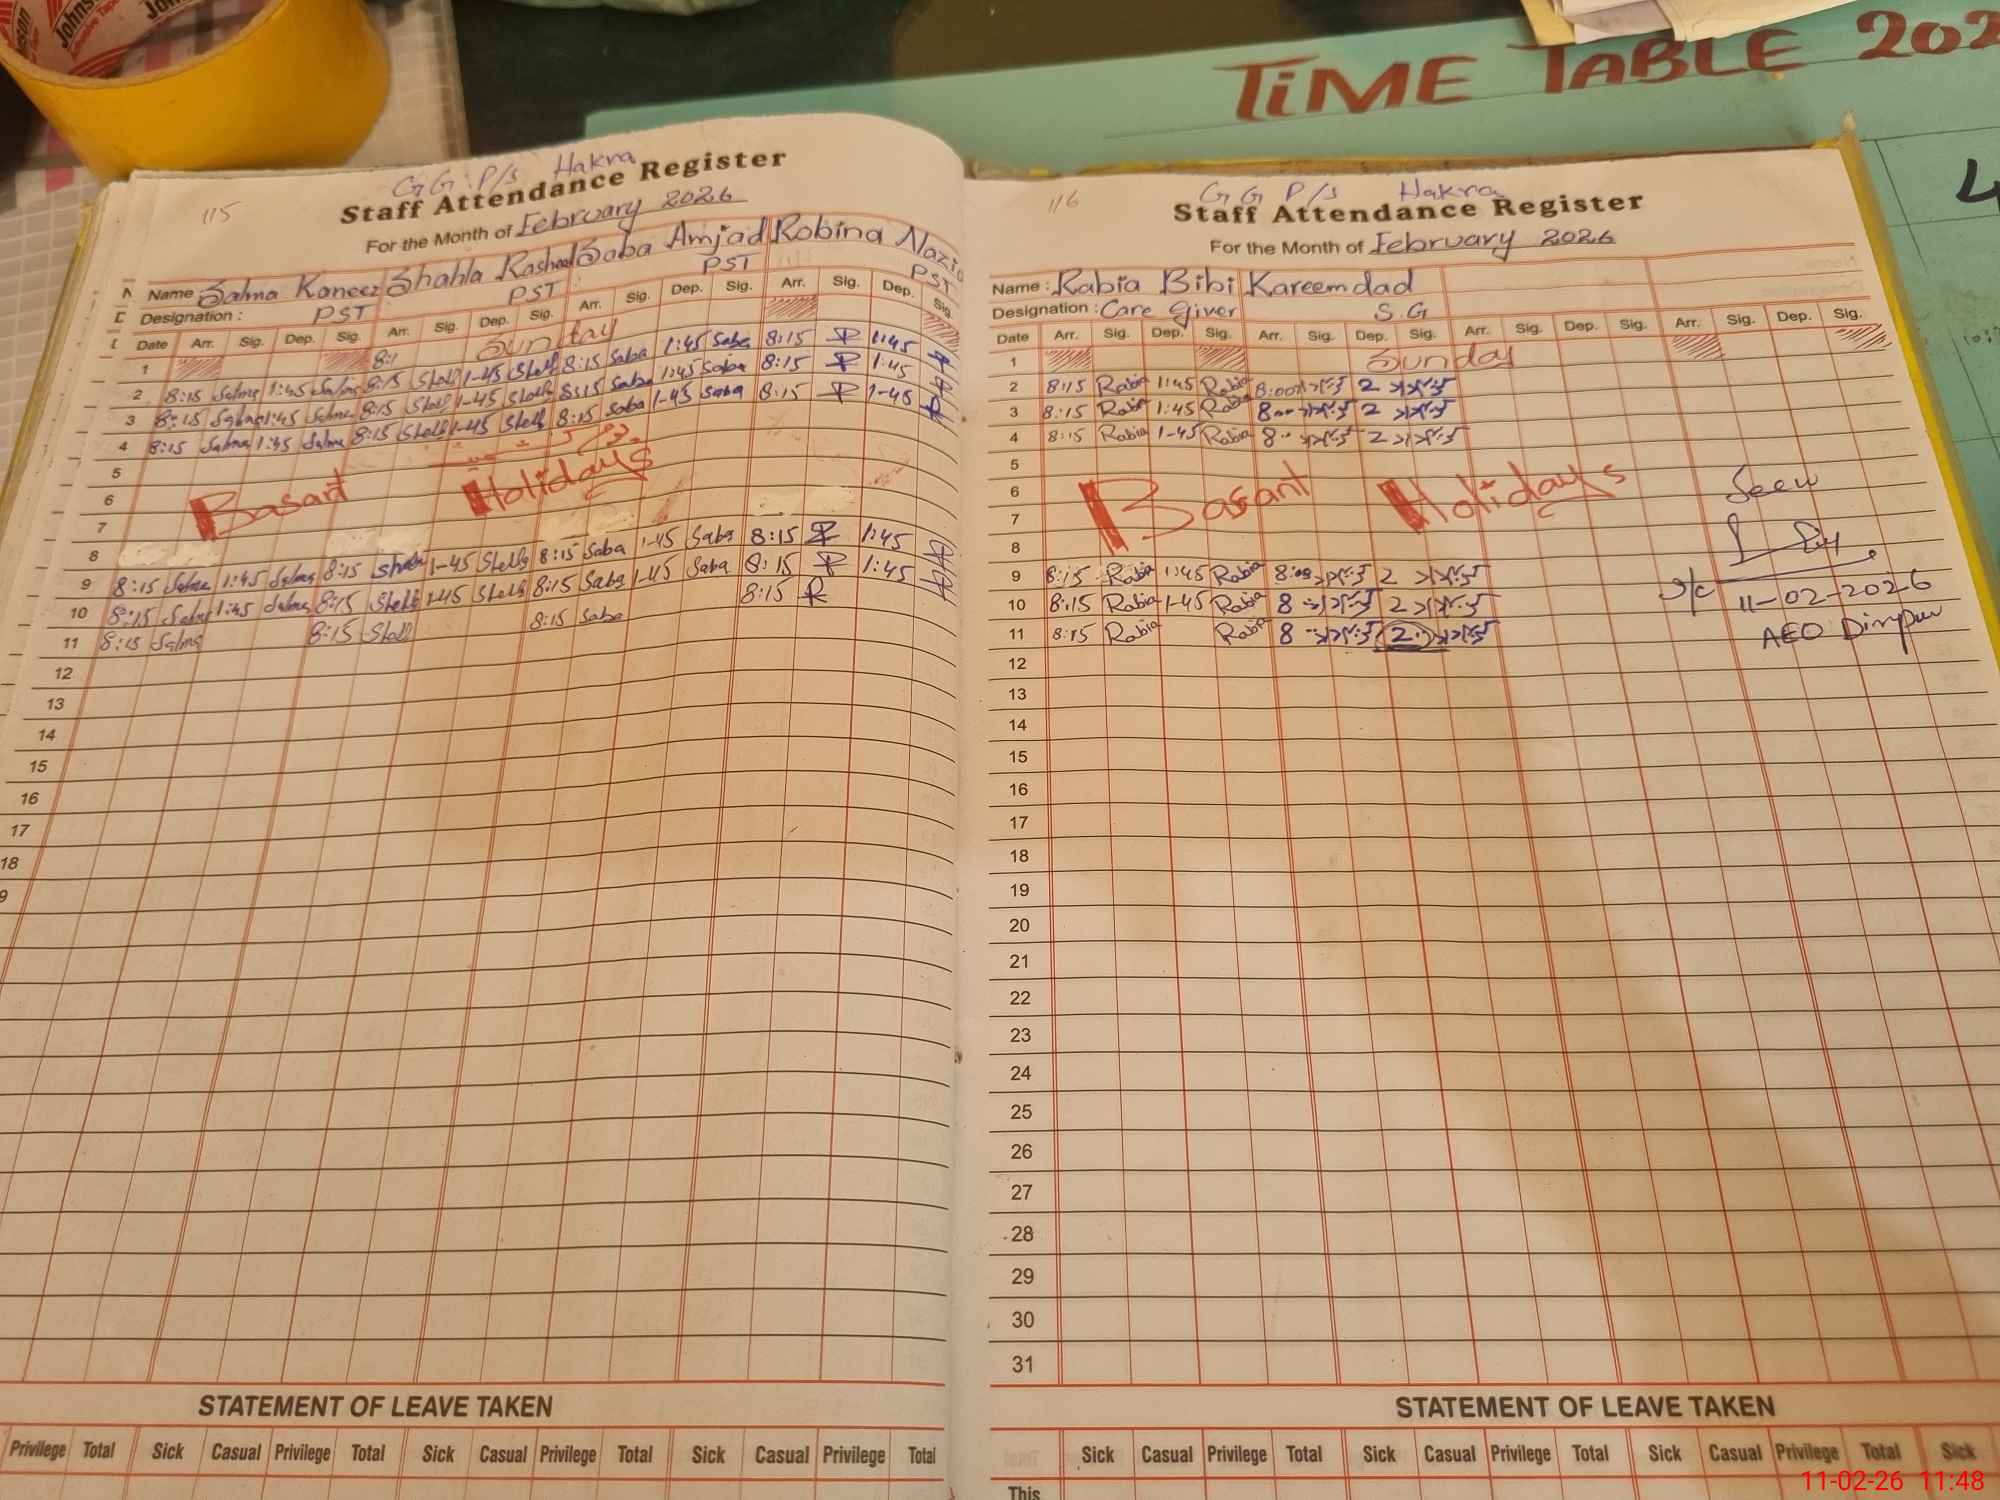 TIME TABLE 202
4
115
G G P/s Hakra
Staff Attendance Register
For the Month of February 2026
Name Salma Kaneez Shahla Rashed Saba Amjad Robina Nazi
Designation : PST PST PST PST
Date Arr. Sig. Dep. Sig. Arr. Sig. Dep. Sig. Arr. Sig. Dep. Sig. Arr. Sig. Dep. Sig.
1 8:1 Sunday
2 8:15 Salma 1:45 Salma 8:15 Shell 1-45 Shell 8:15 Saba 1:45 Saba 8:15 1:45
3 8:15 Salma 1:45 Salma 8:15 Shell 1-45 Shell 8:15 Saba 1:45 Saba 8:15 1:45
4 8:15 Salma 1:45 Salma 8:15 Shell 1-45 Shell 8:15 Saba 1-45 Saba 8:15 1-45
5
6 Basant Holidays
7
8
9 8:15 Salma 1:45 Salma 8:15 Shell 1-45 Shell 8:15 Saba 1-45 Saba 8:15 1:45
10 8:15 Salma 1:45 Salma 8:15 Shell 1-45 Shell 8:15 Saba 1-45 Saba 8:15 1:45
11 8:15 Salma 8:15 Shell 8:15 Saba 8:15 R
12
13
14
15
16
17
18
9
STATEMENT OF LEAVE TAKEN
Privilege Total Sick Casual Privilege Total Sick Casual Privilege Total Sick Casual Privilege Total
116
G G P/s Hakra
Staff Attendance Register
For the Month of February 2026
Name : Rabia Bibi Kareemdad
Designation : Care Giver S.G
Date Arr. Sig. Dep. Sig. Arr. Sig. Dep. Sig. Arr. Sig. Dep. Sig. Arr. Sig. Dep. Sig.
1 Sunday
2 8:15 Rabia 1:45 Rabia 8:00 2
3 8:15 Rabia 1:45 Rabia 8 2
4 8:15 Rabia 1-45 Rabia 8 2
5
6 Basant Holidays Seen
7
8
9 8:15 Rabia 1:45 Rabia 8:00 2
10 8:15 Rabia 1-45 Rabia 8 2 11-02-2026
11 8:15 Rabia Rabia 8 2 AEO Dinpur
12
13
14
15
16
17
18
19
20
21
22
23
24
25
26
27
28
29
30
31
STATEMENT OF LEAVE TAKEN
Sick Casual Privilege Total Sick Casual Privilege Total Sick Casual Privilege Total Sick
This
11-02-26 11:48